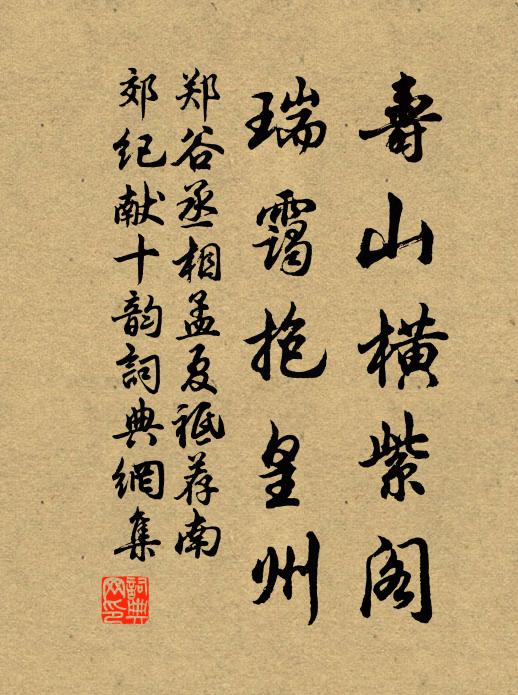 壽山橫紫阁
瑞霭抱皇州
郑谷丞相孟夏祗荐南
郊纪献十韵詞典網集
詞典网印